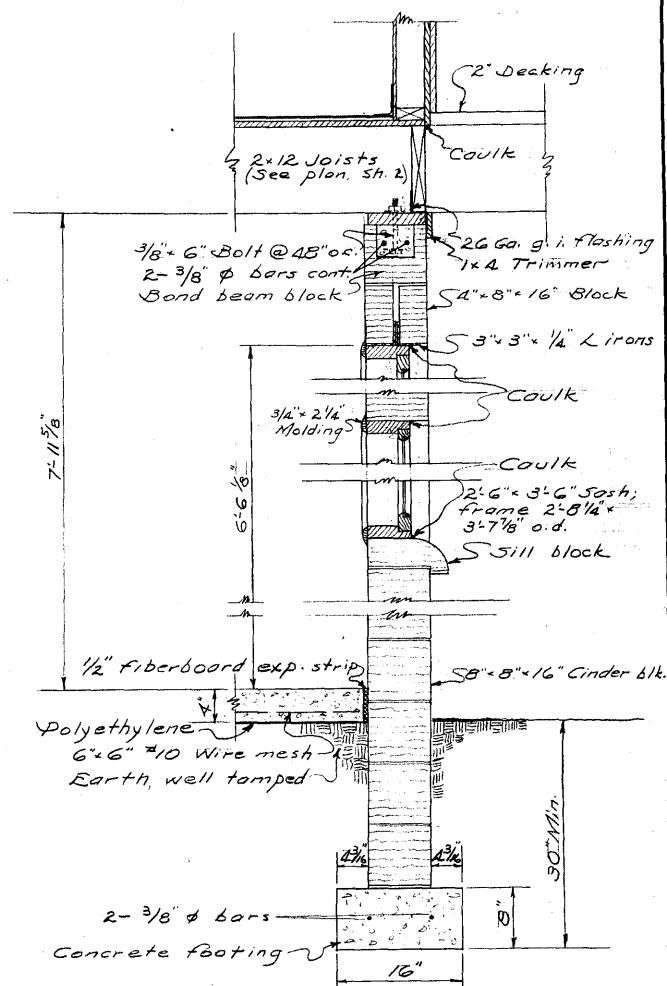 2" Decking
Caulk
2×12 Joists
(See plan, sh. 2)
3/8" × 6" Bolt @ 48" oc.
2- 3/8" ϕ bars cont.
Bond beam block
26 Ga. g. i. flashing
1×4 Trimmer
4" × 8" × 16" Block
3" × 3" × 1/4" L irons
Caulk
3/4" × 2 1/4"
Molding
7'-11 5/8"
6'-6 1/8"
Caulk
2'-6" × 3'-6" Sash;
frame 2'-8 1/4" ×
3'-7 7/8" o.d.
Sill block
1/2" fiberboard exp. strip
8" × 8" × 16" Cinder blk.
4"
Polyethylene
6" × 6" #10 Wire mesh
Earth, well tamped
4 3/16"
4 3/16"
30" Min.
2- 3/8" ϕ bars
8"
Concrete footing
16"